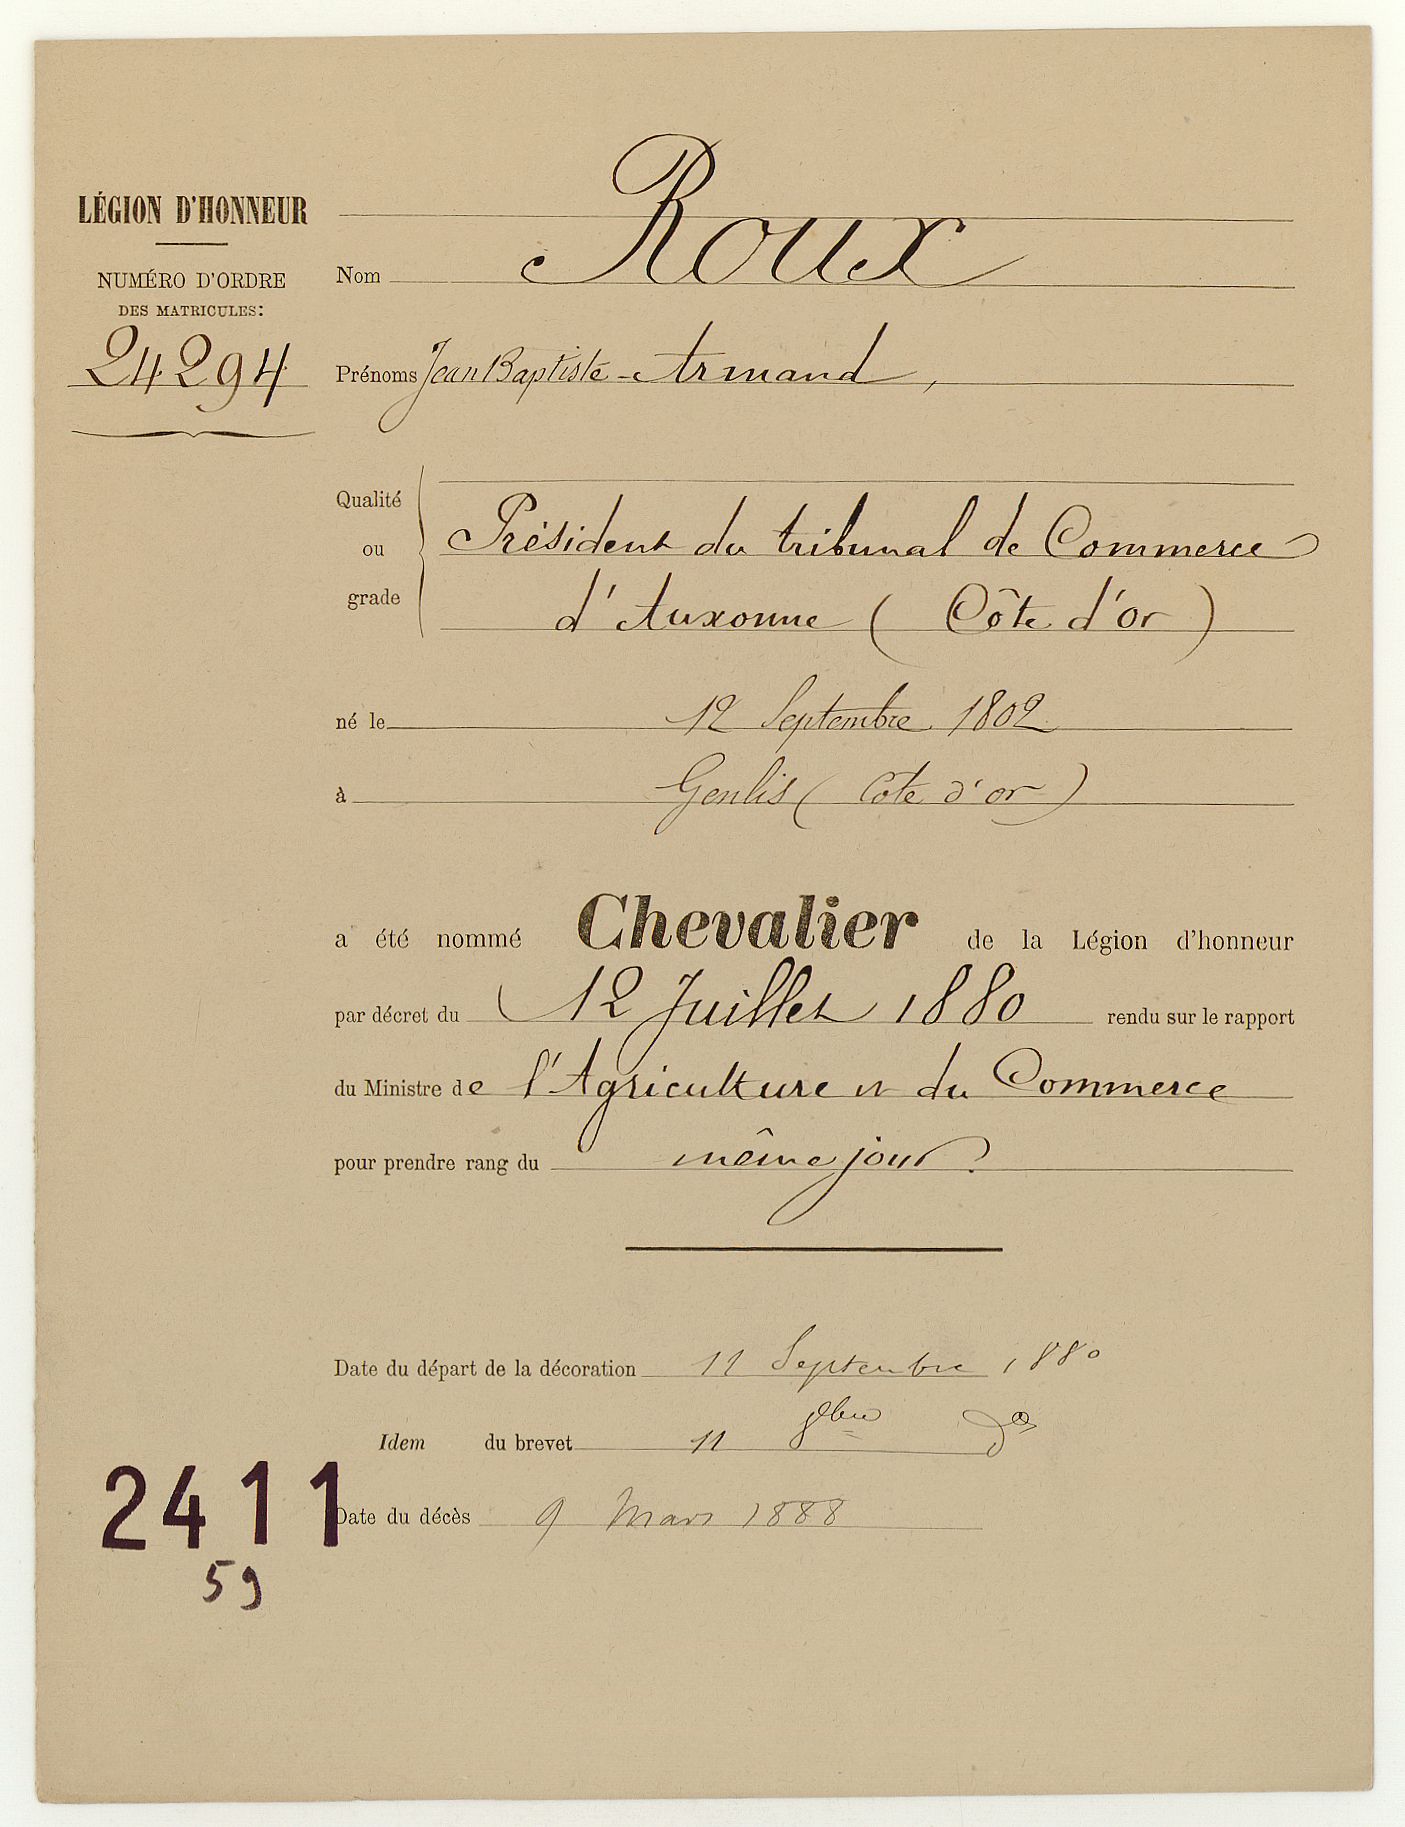 LÉGION D'HONNEUR
NUMÉRO D'ORDRE
DES MATRICULES:
24294
Nom Roux
Prénoms Jean Baptiste-Armand,
Qualité
ou
grade
Président du tribunal de Commerce
d'Auxonne (Côte d'or)
né le 12 Septembre 1802
à Genlis (Cote d'or)
a été nommé Chevalier de la Légion d'honneur
par décret du 12 Juillet 1880 rendu sur le rapport
du Ministre de l'Agriculture et du Commerce
pour prendre rang du même jour.
Date du départ de la décoration 11 Septembre 1880
Idem du brevet 11 8bre do
Date du décès 9 Mars 1888
2411
59